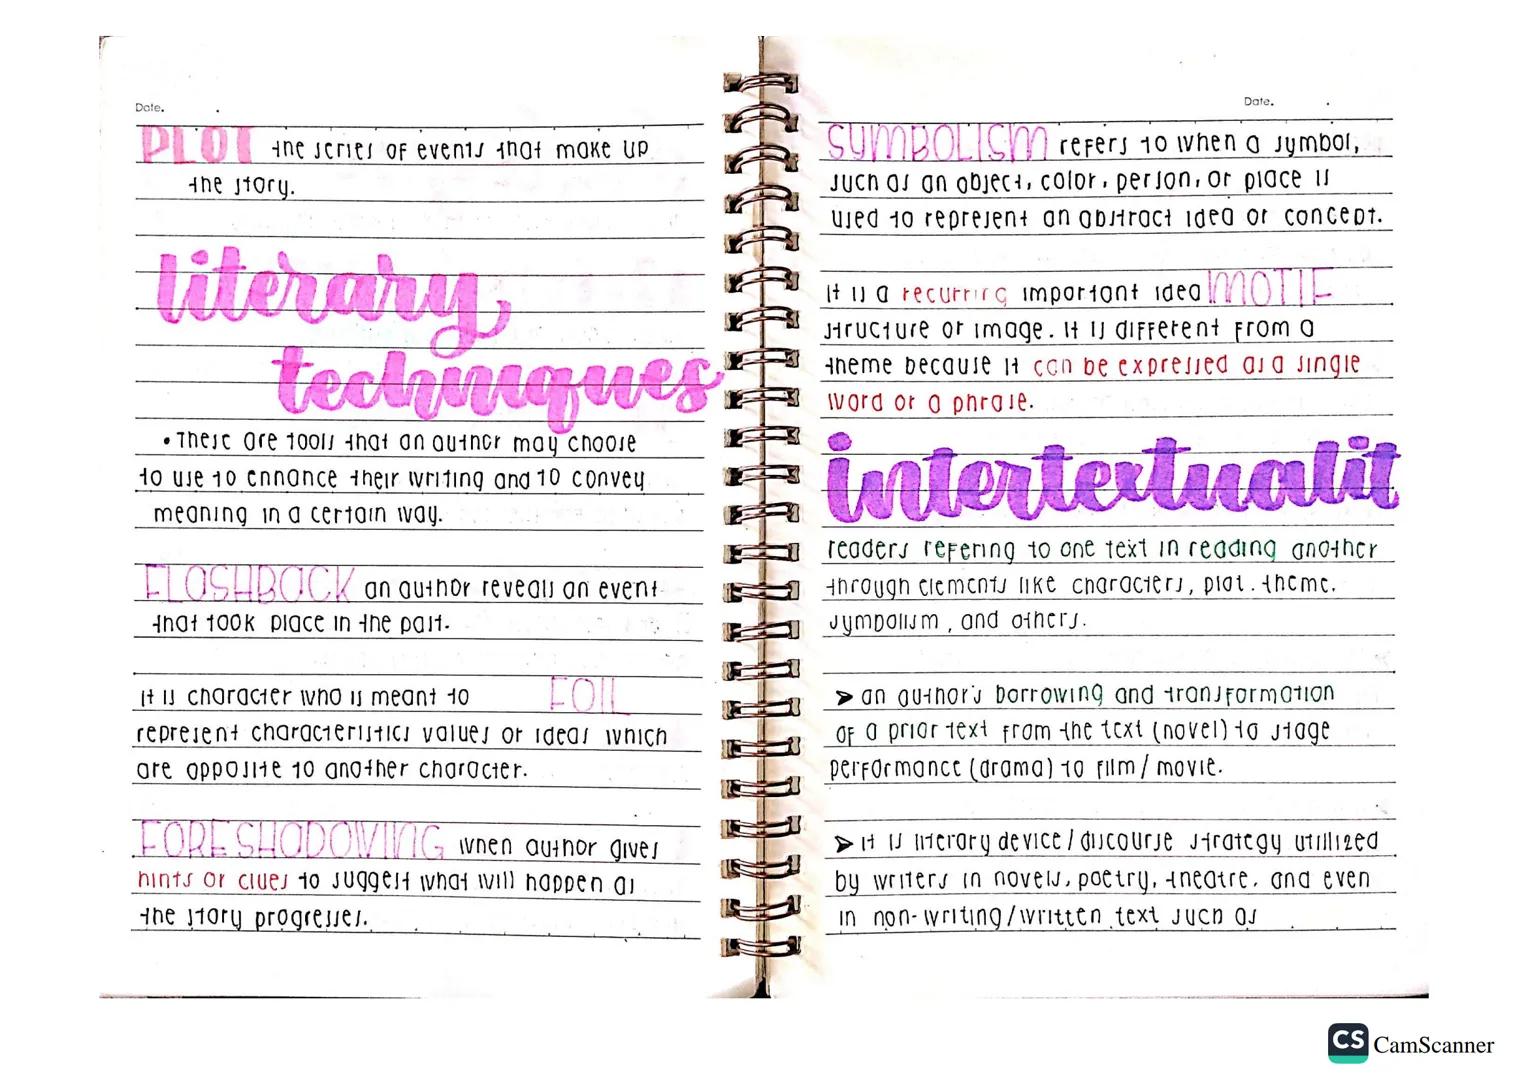 Date.
PLOT the series of events that make up
the story.
literary
techniques
• These are tools that an author may choose
to use to enhance their writing and to convey
meaning in a certain way.
FLASHBACK an author reveals an event
that took place in the past.
it is character who is meant to FOIL
represent characteristics values or ideas which
are opposite to another character.
FORESHADOWING when author gives
hints or clues to suggest what will happen as
the story progresses.
Date.
SYMBOLISM refers to when a symbol,
such as an object, color, person, or place is
used to represent an abstract idea or concept.
it is a recurring important idea MOTIF
structure or image. it is different from a
theme because it can be expressed as a single
word or a phrase.
intertextualit
readers refering to one text in reading another
through elements like characters, plot. theme.
symbolism, and others.
➤ an author's borrowing and transformation
of a prior text from the text (novel) to stage
performance (drama) to film/movie.
➤ it is literary device/discourse strategy utillized
by writers in novels, poetry, theatre, and even
in non-writing/written text such as
CS CamScanner